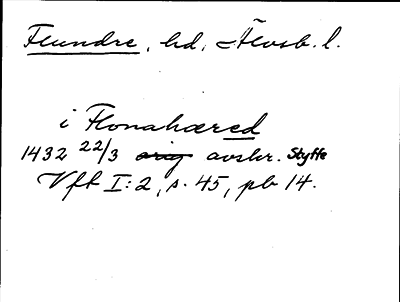 Flundre, hd, Älvsb. l.
i Flonahæred
1432 22/3 orig avskr. Styffe
Vft I:2, s. 45, pb 14.